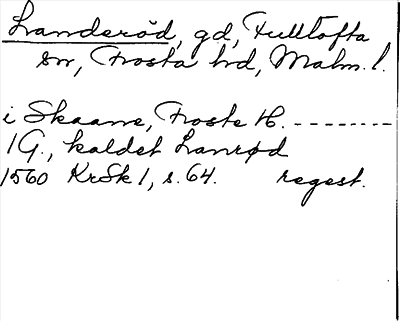 Landeröd, gd, Fulltofta
sn, Frosta hd, Malm. l.
i Skaane, Froste H. --------
1 G., kaldet Lanrød
1560 KrSk 1, s. 64. regest.